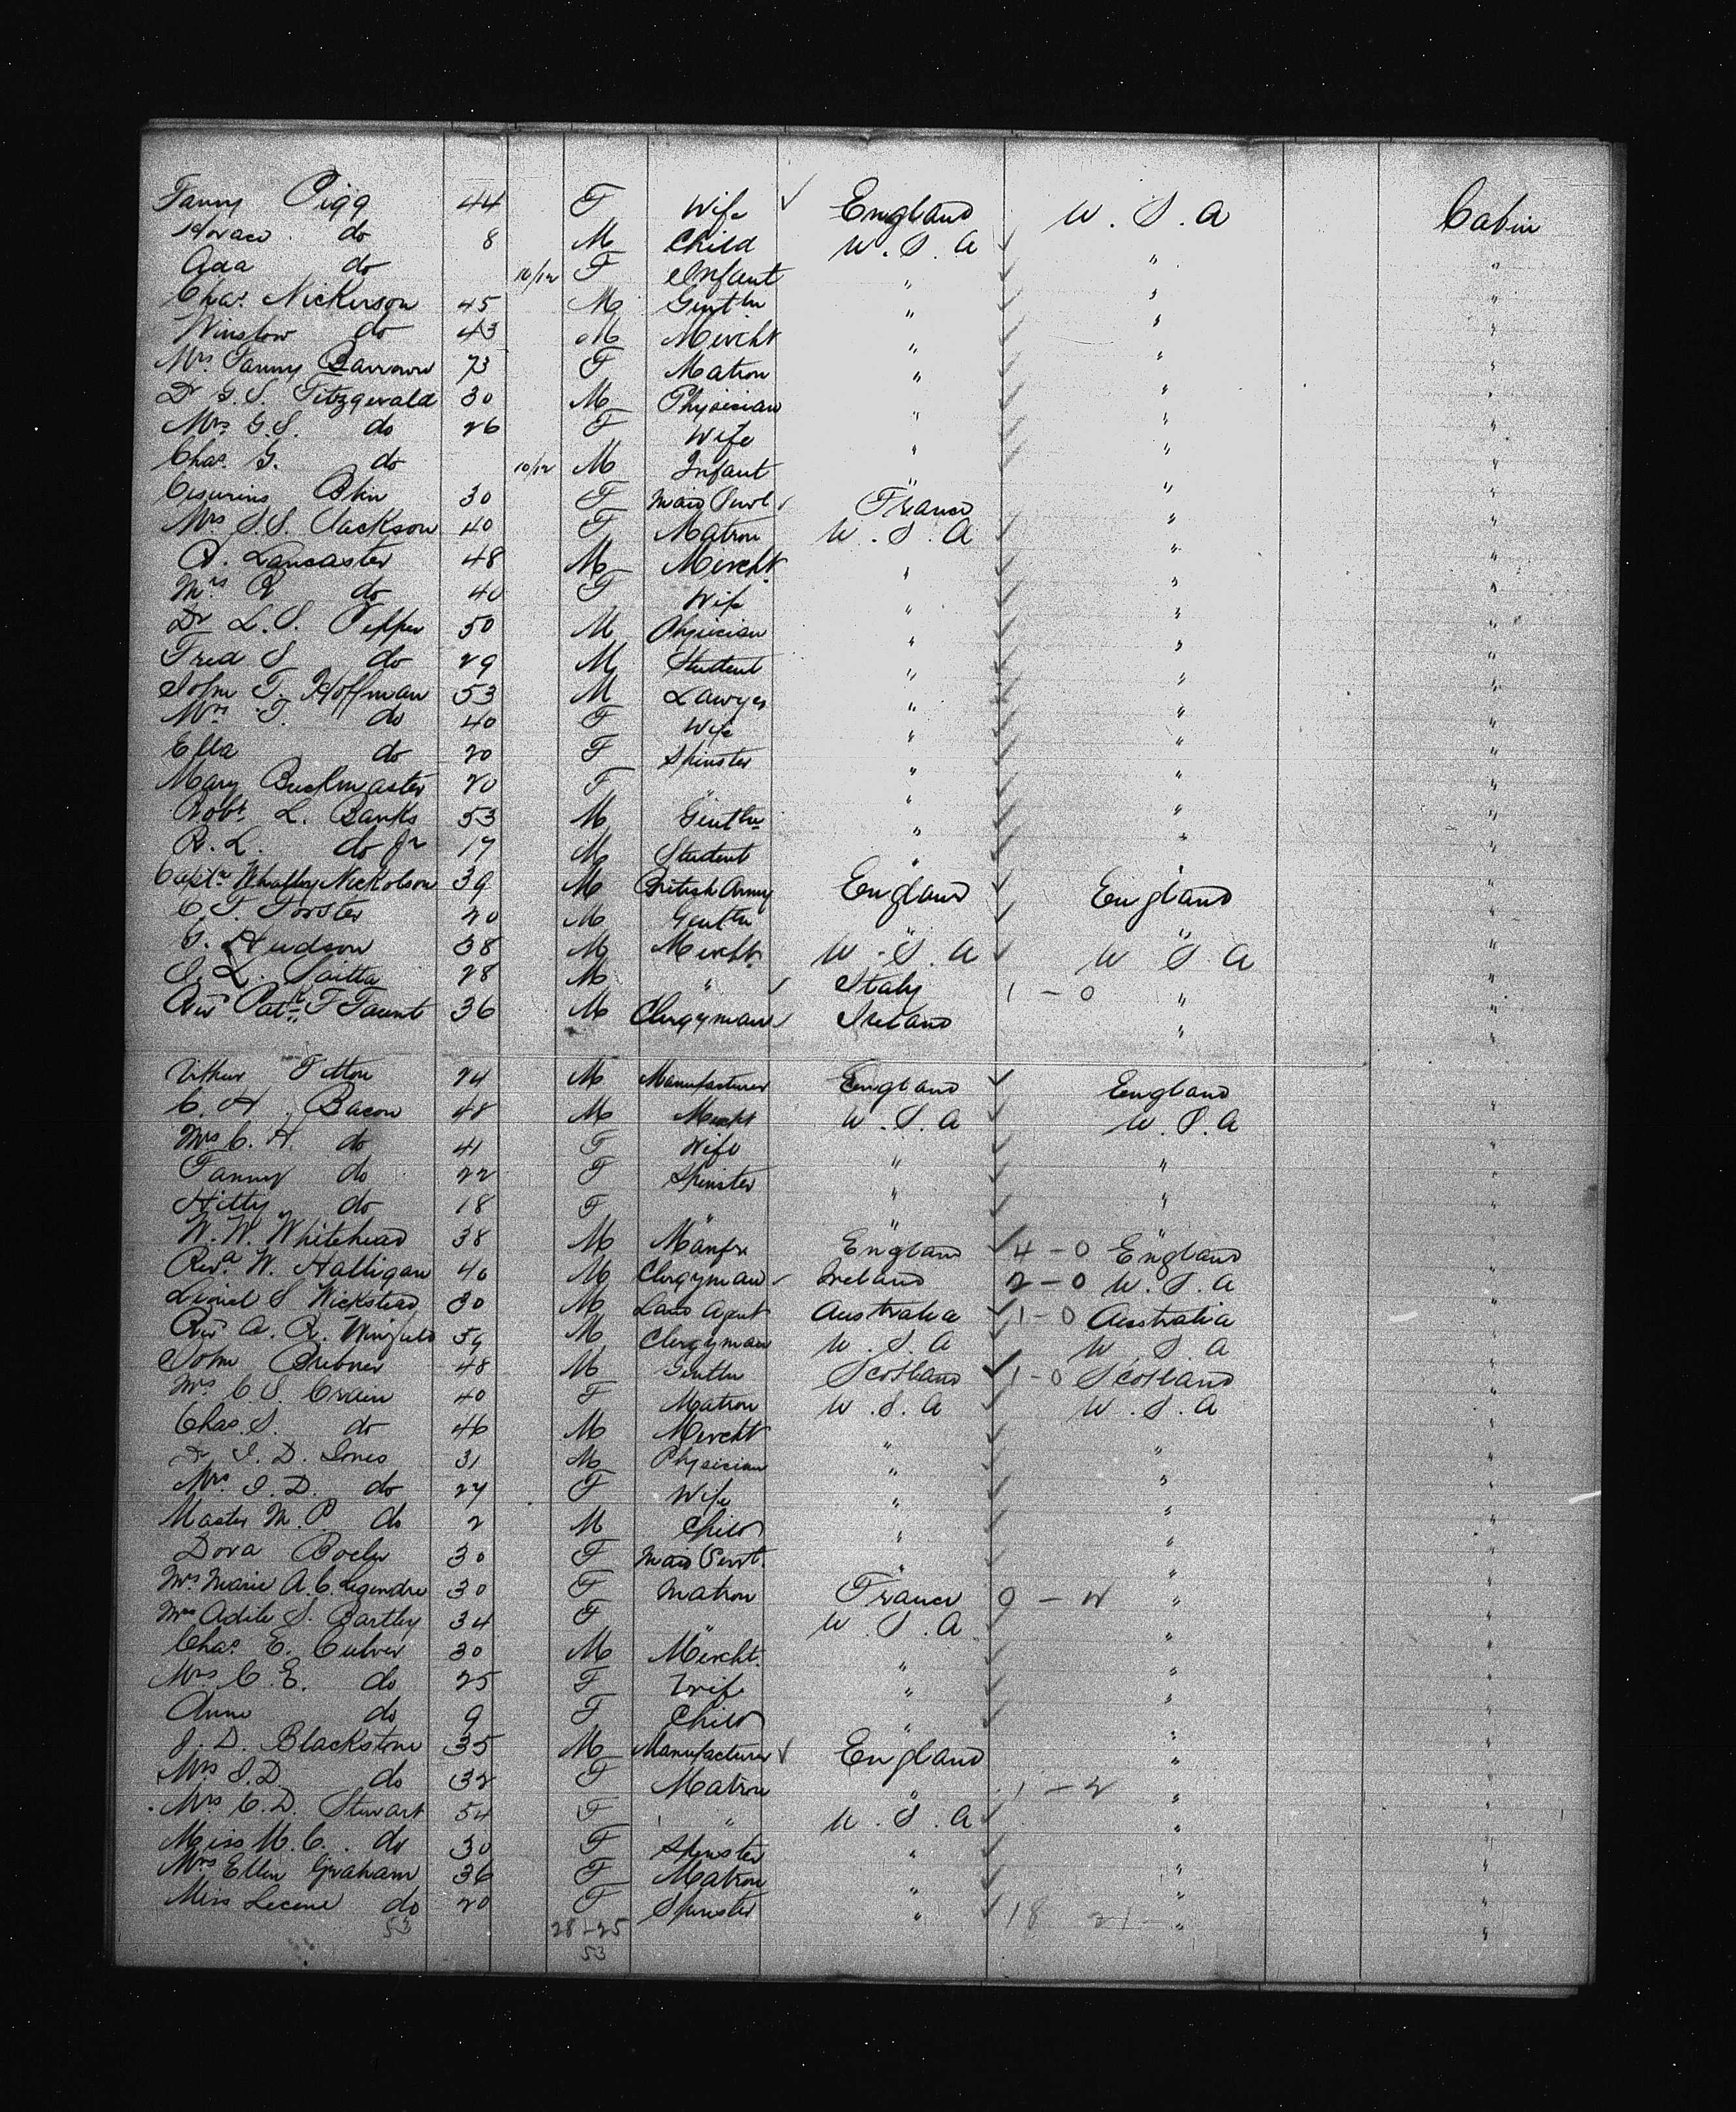 Fanny Pigg 44 F Wife ✓ England U.S.A Cabin
Horace do 8 M Child U.S.A ✓ " "
Ada do 10/12 F Infant " ✓ " "
Chas. Nickerson 45 M Gentln " ✓ " "
Winslow do 43 M Mercht " ✓ " "
Mrs. Fanny Barrows 73 F Matron " ✓ " "
Dr G.S. Fitzgerald 30 M Physician " ✓ " "
Mrs. G.S. do 26 F Wife " ✓ " "
Chas. G. do 10/12 M Infant " ✓ " "
Blin 30 F Maid Servt ✓ France " "
Mrs S.S. Jackson 40 F Matron U.S.A ✓ " "
R. Lancaster 48 M Mercht. " ✓ " "
Mrs R do 40 F Wife " ✓ " "
Dr L.S. Pepper 50 M Physician " ✓ " "
Fred S do 29 M Student " ✓ " "
John T. Hoffman 53 M Lawyer " ✓ " "
Mrs T. do 40 F Wife " ✓ " "
Ella do 20 F Spinster " ✓ " "
Mary Buckmaster 20 F " " ✓ " "
Robt. L. Banks 53 M Gentln " ✓ " "
R.L. do Jr 17 M Student " ✓ " "
Captn Whalley Nickolson 39 M British Army England ✓ England "
C.T. Forster 20 M Gentln " ✓ " "
G. Hudson 38 M Mercht. U.S.A ✓ U.S.A "
J.L. Saitta 28 M " ✓ Italy 1 - 0 " "
Revd Patk F Taunt 36 M Clergyman ✓ Ireland " "
Arthur Titton 24 M Manufacturer England ✓ England
C.H. Bacon 48 M Mercht U.S.A ✓ U.S.A "
Mrs C.H. do 41 F Wife " ✓ " "
Fanny do 22 F Spinster " ✓ " "
Kitty do 18 F " " ✓ " "
W.W. Whitehead 38 M Manfr England ✓ 4 - 0 England "
Revd. W. Halligan 40 M Clergyman ✓ Ireland 2 - 0 U.S.A "
Lionel S Wickstead 30 M Land Agent Australia ✓ 1 - 0 Australia "
Revd A.R. Winfield 59 M Clergyman U.S.A ✓ U.S.A "
John Brebner 48 M Gentln Scotland ✓ 1 - 0 Scotland "
Mrs C.S. Crain 40 F Matron U.S.A ✓ U.S.A "
Chas. S. do 46 M Mercht " ✓ " "
Dr J.D. Jones 31 M Physician " ✓ " "
Mrs. J.D. do 24 F Wife " ✓ " "
Master M.P do 2 M Child " ✓ " "
Dora 30 F Maid Servt. " ✓ " "
Mrs Marie A.C. Legendre 30 F Matron France 0 - " "
Mrs Adile S. Bartley 34 F " U.S.A ✓ " "
Chas. E. Culver 30 M Mercht. " ✓ " "
Mrs C.E. do 25 F Wife " ✓ " "
Anne do 9 F Child " ✓ " "
J.D. Blackstone 35 M Manufacturer ✓ England " "
Mrs J.D. do 32 F Matron " 1 - 2 " "
Mrs C.D. Stewart 54 F " U.S.A ✓ " "
Miss M.C. do 30 F Spinster " ✓ " "
Mrs Ellen Graham 36 F Matron " ✓ " "
Miss do 20 F Spinster " ✓ 18 21 " "
53 28-25
53